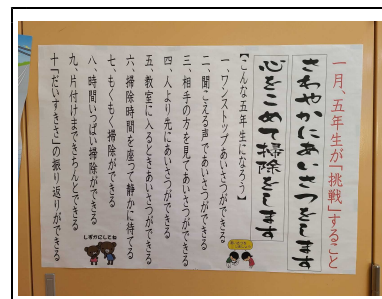 一月、五年生が「挑戦」すること
さわやかにあいさつをします
心をこめて掃除をします
【こんな五年生になろう】
一、ワンストップあいさつができる
二、聞こえる声であいさつができる
三、相手の方を見てあいさつができる
四、人より先にあいさつができる
五、教室に入るときあいさつができる
六、掃除時間を座って静かに待てる
七、もくもく掃除ができる
八、時間いっぱい掃除ができる
九、片付けまできちんとできる
十「だいすきさ」の振り返りができる
しずかにしてね